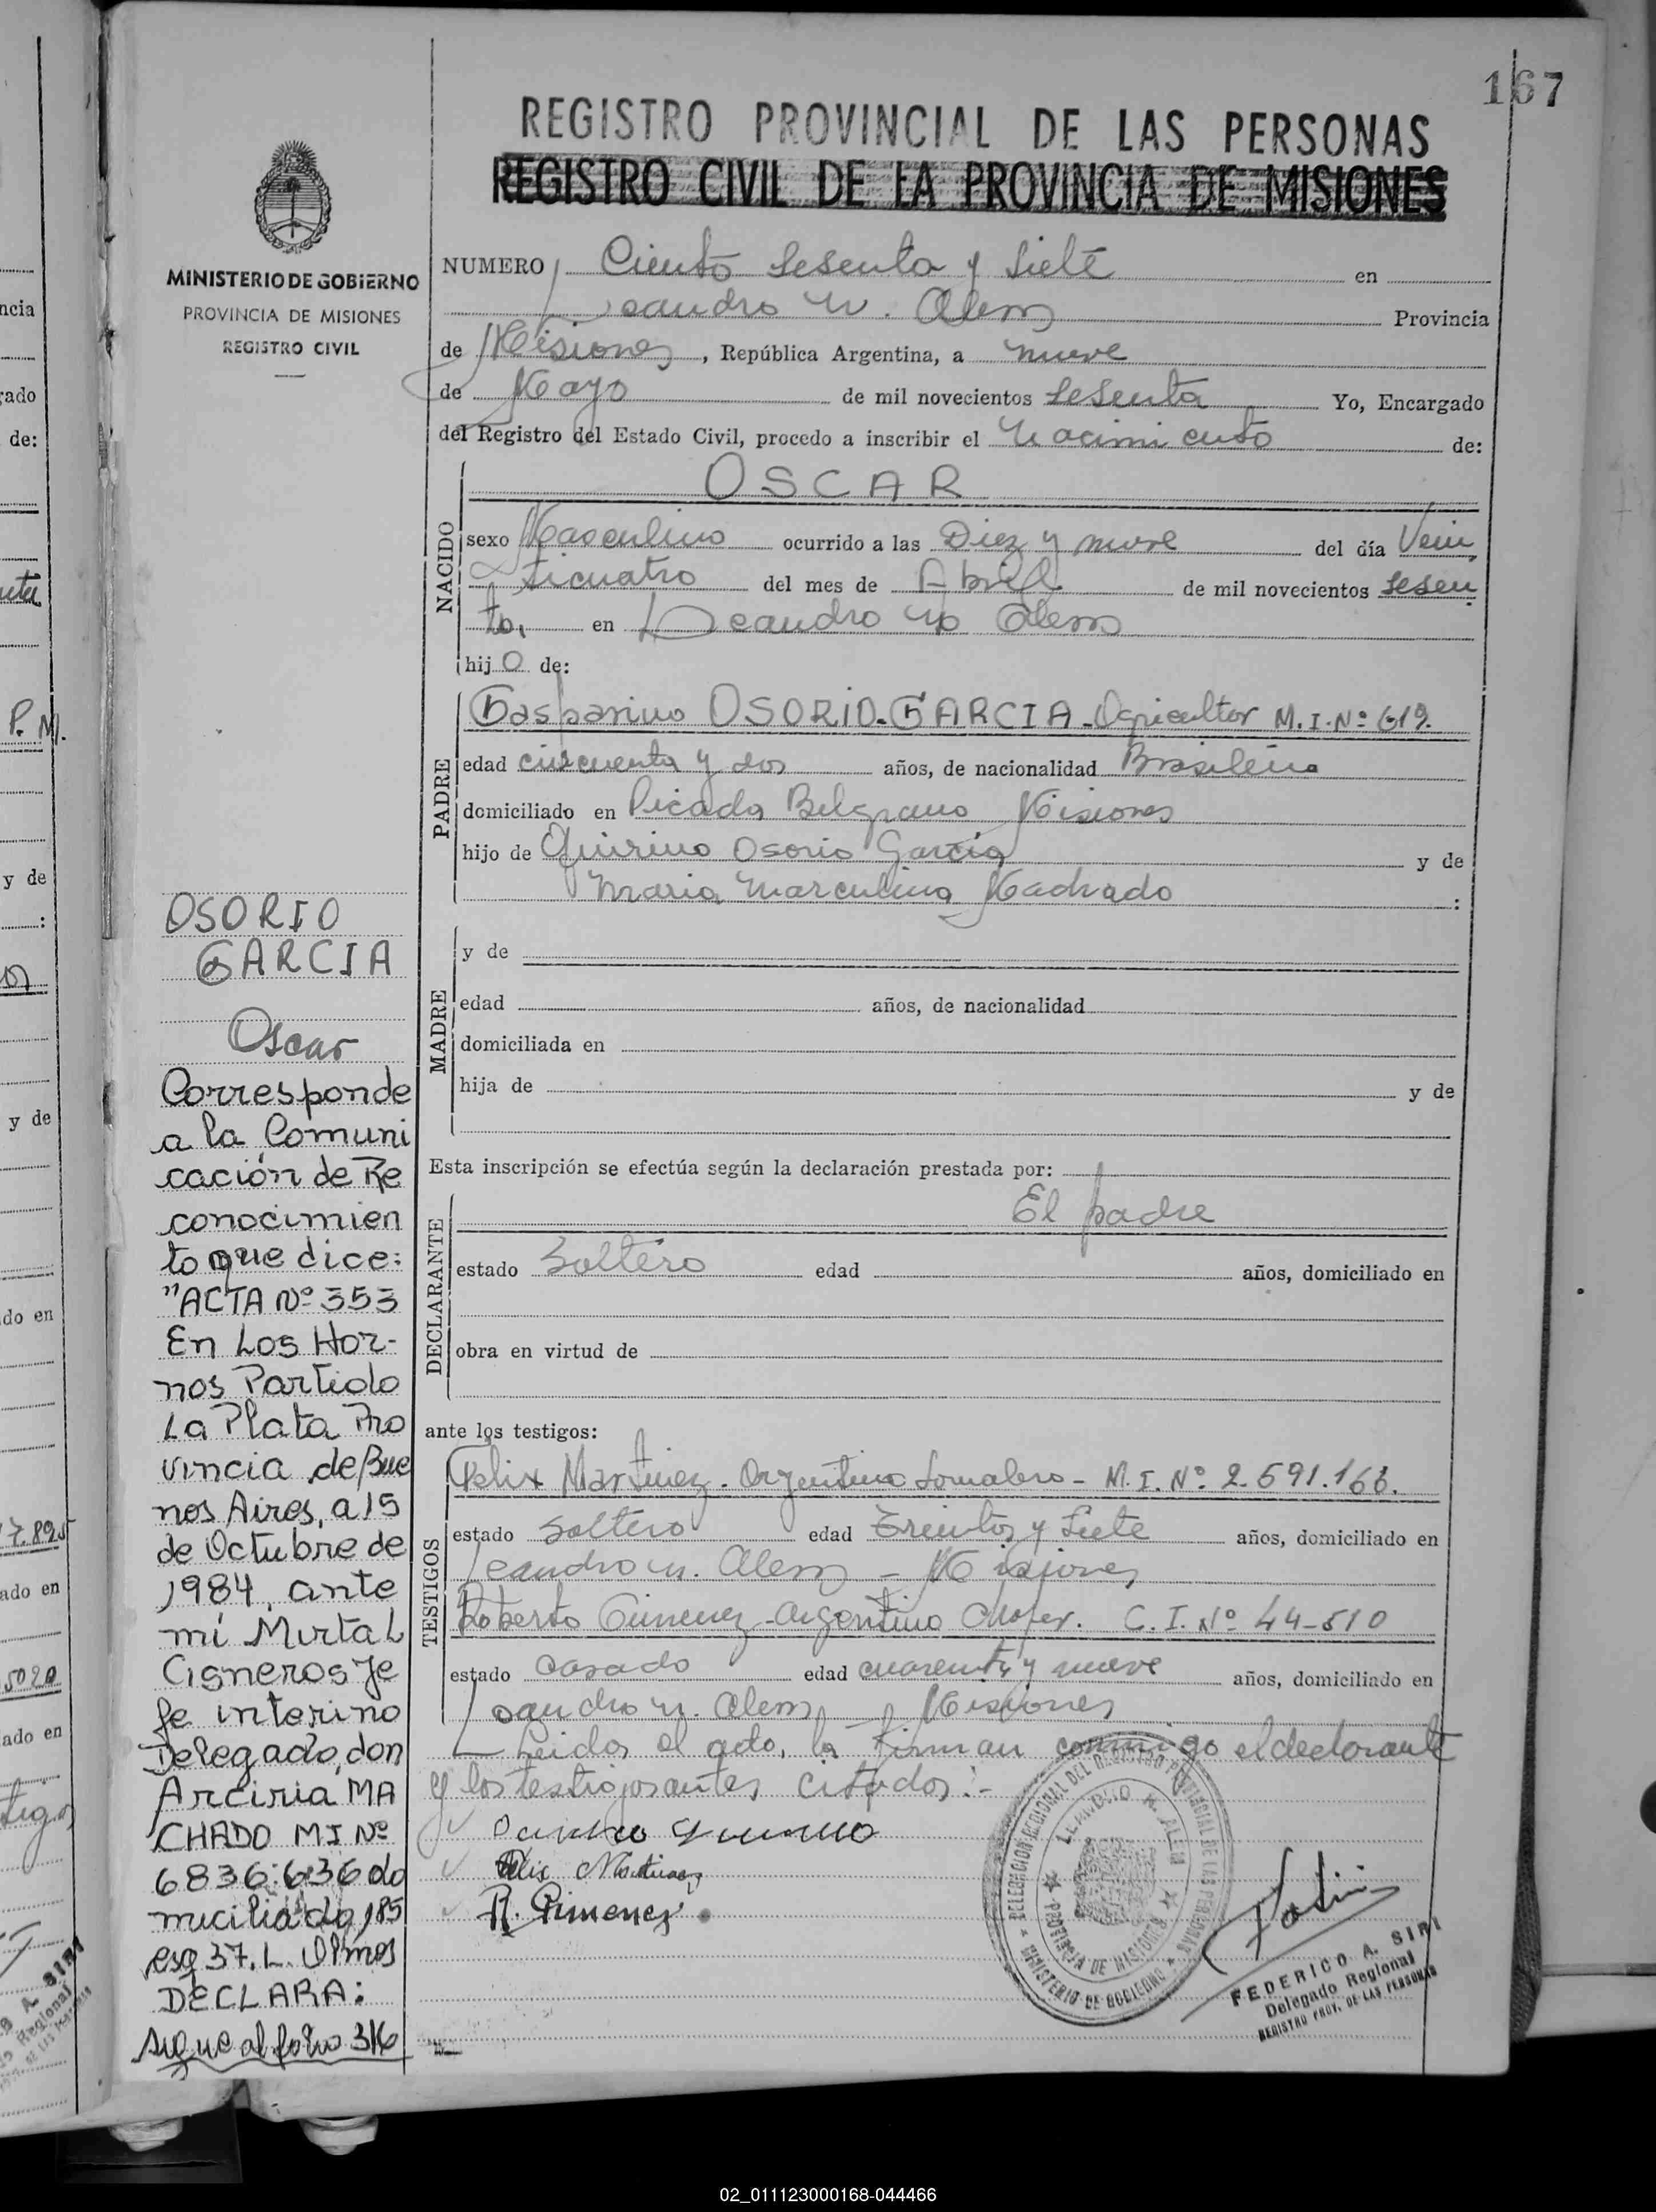 167
REGISTRO PROVINCIAL DE LAS PERSONAS
REGISTRO CIVIL DE LA PROVINCIA DE MISIONES
MINISTERIO DE GOBIERNO
PROVINCIA DE MISIONES
REGISTRO CIVIL
NUMERO Ciento Sesenta y Siete en
Leandro N. Alem Provincia
de Misiones, República Argentina, a nueve
de Mayo de mil novecientos Sesenta Yo, Encargado
del Registro del Estado Civil, procedo a inscribir el Nacimiento de:
NACIDO
OSCAR
sexo Masculino ocurrido a las Diez y nueve del día Vein
ticuatro del mes de Abril de mil novecientos Sesen
ta, en Leandro N. Alem
hijo de:
PADRE
Gasparino OSORIO-GARCIA-Agricultor M.I.Nº 619.
edad cincuenta y dos años, de nacionalidad Brasileña
domiciliado en Picada Belgrano Misiones
hijo de Quirino Osorio Garcia y de
Maria Marculina Machado :
MADRE
y de
edad años, de nacionalidad
domiciliada en
hija de y de
Esta inscripción se efectúa según la declaración prestada por:
DECLARANTE
El padre
estado Soltero edad años, domiciliado en
obra en virtud de
ante los testigos:
TESTIGOS
Felix Martinez-Argentino Jornalero-M.I.Nº 2.591.163.
estado Soltero edad Treinta y Siete años, domiciliado en
Leandro N. Alem - Misiones
Roberto Gimenez-Argentino Chofer. C.I.Nº 44-510
estado Casado edad cuarenta y nueve años, domiciliado en
Leandro N. Alem Misiones
Leida el acta, la firman conmigo el declarante
y los testigos antes citados:-
Felix Martinez
R. Gimenez
DELEGACION REGIONAL DEL REGISTRO PROVINCIAL DE LAS PERSONAS
LEANDRO N. ALEM
PROVINCIA DE MISIONES
MINISTERIO DE GOBIERNO
FEDERICO A. SIRI
Delegado Regional
REGISTRO PROV. DE LAS PERSONAS
OSORIO
GARCIA
Oscar
Corresponde
a la Comuni
cación de Re
conocimien
to que dice:
"ACTA Nº 353
En Los Hor-
nos Partido
La Plata Pro
vincia de Bue
nos Aires, a 15
de Octubre de
1984, ante
mi Mirta L
Cisneros Je
fe interino
Delegado, don
Arciria MA
CHADO MI Nº
6836.636 do
miciliado 185
esq 37, L. Olmos
DECLARA:
sigue al folio 316
ncia
de:
y de
y de
do en
ado en
ado en
02_011123000168-044466